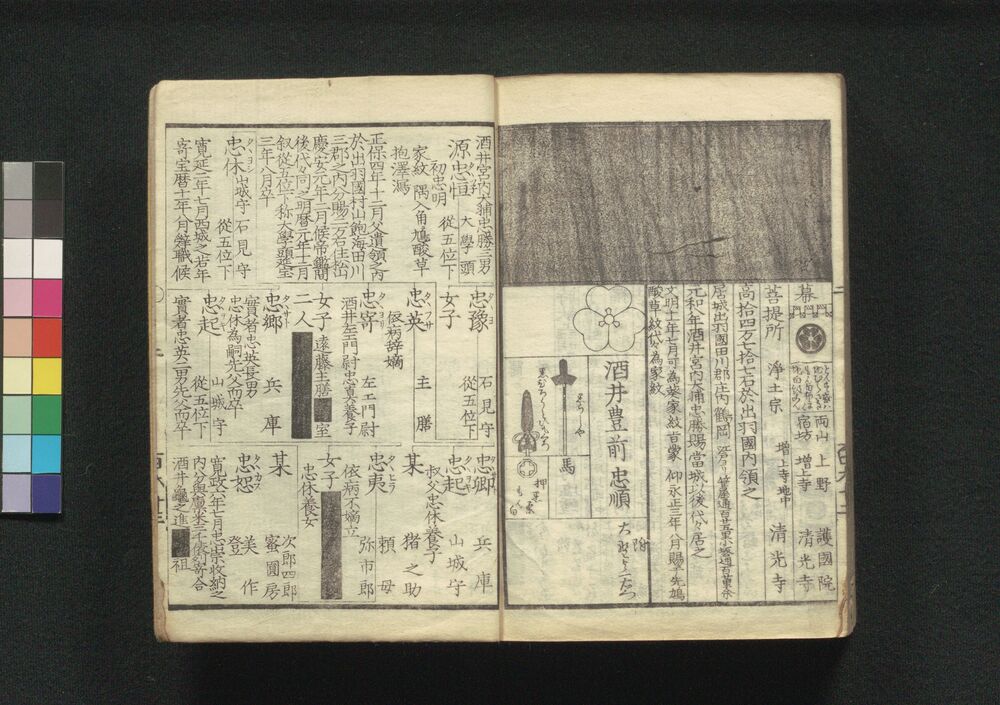 幕
両山 上野 護國院
宿坊 増上寺 清光寺
菩提所 浄土宗 増上寺地中 清光寺
高拾四万七拾七石於出羽國内領之
居城出羽國田川郡庄内鶴岡
元和八年酒井宮内大輔忠勝賜當城以後代々居之
文明十一年七月可為葵家紋旨蒙 仰永正三年八月賜平先鳩
酸草紋代々為家紋
酒井豊前 忠順
馬
押
酒井宮内大輔忠勝三男
源忠恒 大學頭
初忠明 從五位下
家紋 隅入角鳩酸草
抱澤瀉
正保四年十二月父遺領之内
於出羽國村山飽海田川
三郡之内分賜二万石住松山
慶安元年二月候帝鑑間
後代々同之明暦元年十二月
叙從五位下称大學頭延宝
三年八月卒
忠休 山城守 石見守
從五位下
寛延二年七月西城之若年
寄宝暦十年八月辞職候
忠豫 石見守
從五位下
女子
忠英 主膳
依病辞嫡
忠寄 左エ門尉
酒井左エ門尉忠真養子
女子 遠藤主膳 室
二人
忠郷 兵庫
實者忠英長男
忠休為嗣先父而卒
忠起 山城守
從五位下
實者忠英二男先父而卒
忠郷 兵庫
忠起 山城守
叔父忠休養子
某 猪之助
忠夷 頼母
弥市郎
依病不嫡立
女子
忠休養女
某 次郎四郎
蜜圓房
忠恕 美作
登
寛政六年七月忠崇收納之
内分與廩米三千俵列寄合
酒井龜之進 祖